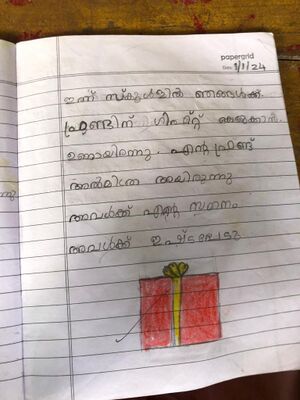 papergrid
Date: 1/1/24
ഇന്ന് സ്കൂളിൽ ഞങ്ങൾക്ക്
ഫ്രണ്ടിന് ഗിഫ്റ്റ് കൈമാറാൻ
ഉണ്ടായിരന്നു. എന്റെ ഫ്രണ്ട്
അൽമിത്ര ആയിരുന്നു
അവൾക്ക് എന്റെ സമ്മനം
അവൾക്ക് ഇഷ്ടപ്പേട്ടു